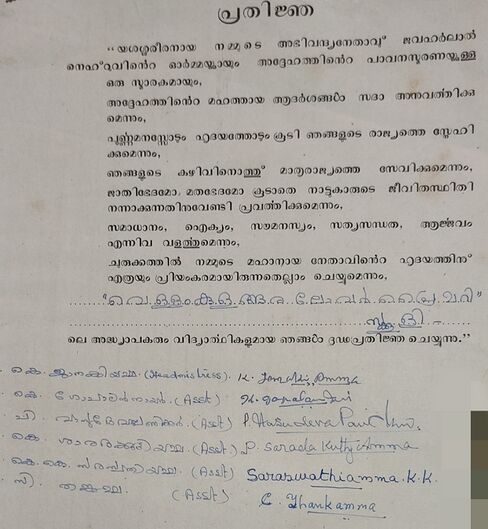 പ്രതിജ്ഞ
“യശശ്ശരീരനായ നമ്മുടെ അഭിവന്ദ്യനേതാവു് ജവഹർലാൽ
നെഹ്റുവിൻെറ ഓർമ്മയ്ക്കായും അദ്ദേഹത്തിൻെറ പാവനസ്മരണയ്ക്കുള്ള
ഒരു സ്മാരകമായും,
അദ്ദേഹത്തിൻെറ മഹത്തായ ആദർശങ്ങൾ സദാ അനുവർത്തിക്കു
മെന്നും,
പൂർണ്ണമനസ്സോടും ഹൃദയത്തോടുംകൂടി ഞങ്ങളുടെ രാജ്യത്തെ സ്നേഹി
ക്കുമെന്നും,
ഞങ്ങളുടെ കഴിവിനൊത്തു് മാതൃരാജ്യത്തെ സേവിക്കുമെന്നും,
ജാതിഭേദമോ മതഭേദമോ കൂടാതെ നാട്ടുകാരുടെ ജീവിതസ്ഥിതി
നന്നാക്കുന്നതിനുവേണ്ടി പ്രവർത്തിക്കുമെന്നും,
സമാധാനം, ഐക്യം, സൗമനസ്യം, സത്യസന്ധത, ആർജ്ജവം
എന്നിവ വളർത്തുമെന്നും,
ചുരുക്കത്തിൽ നമ്മുടെ മഹാനായ നേതാവിൻെറ ഹൃദയത്തിനു്
എത്രയും പ്രിയംകരമായിരുന്നതെല്ലാം ചെയ്യുമെന്നും,
ലോവർ പ്രൈമറി
ലെ അദ്ധ്യാപകരും വിദ്യാർത്ഥികളുമായ ഞങ്ങൾ ദൃഢപ്രതിജ്ഞ ചെയ്യുന്നു.”
കെ. ജാനകിയമ്മ (Headmistress). K. Janaki Amma
കെ. ഗോപാലൻനായർ (Asst) K. Gopalan Nair
പി. വാസുദേവപ്പണിക്കർ (Asst) P. Vasudeva Panicker
ശാരദക്കുട്ടിയമ്മ (Asst) P. Sarada Kutty Amma
കെ. കെ. സരസ്വതിയമ്മ (Asst) Saraswathiamma. K. K.
സി. തങ്കമ്മ (Asst) C. Thankamma